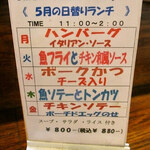 5月の日替りランチ
TIME 11:00~2:00
月 ハンバーグ
イタリアン・ソース
火 魚フライとチキン南蛮ソース
水 ポークかつ
チーズ入り
木 魚ソテーとトンカツ
金 チキンソテー
ポーチドエッグのせ
スープ・サラダ・ライス付き
¥800-(税込¥880-)